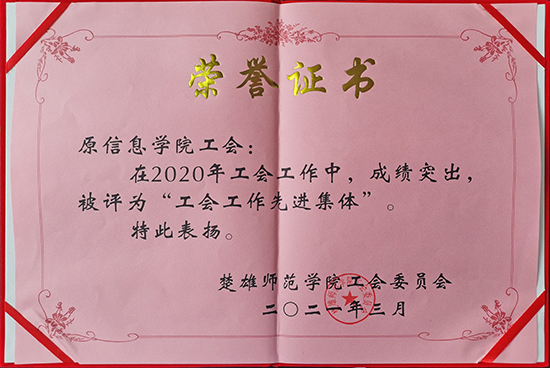 荣誉证书
原信息学院工会：
在2020年工会工作中，成绩突出，
被评为“工会工作先进集体”。
特此表扬。
楚雄师范学院工会委员会
二〇二一年三月